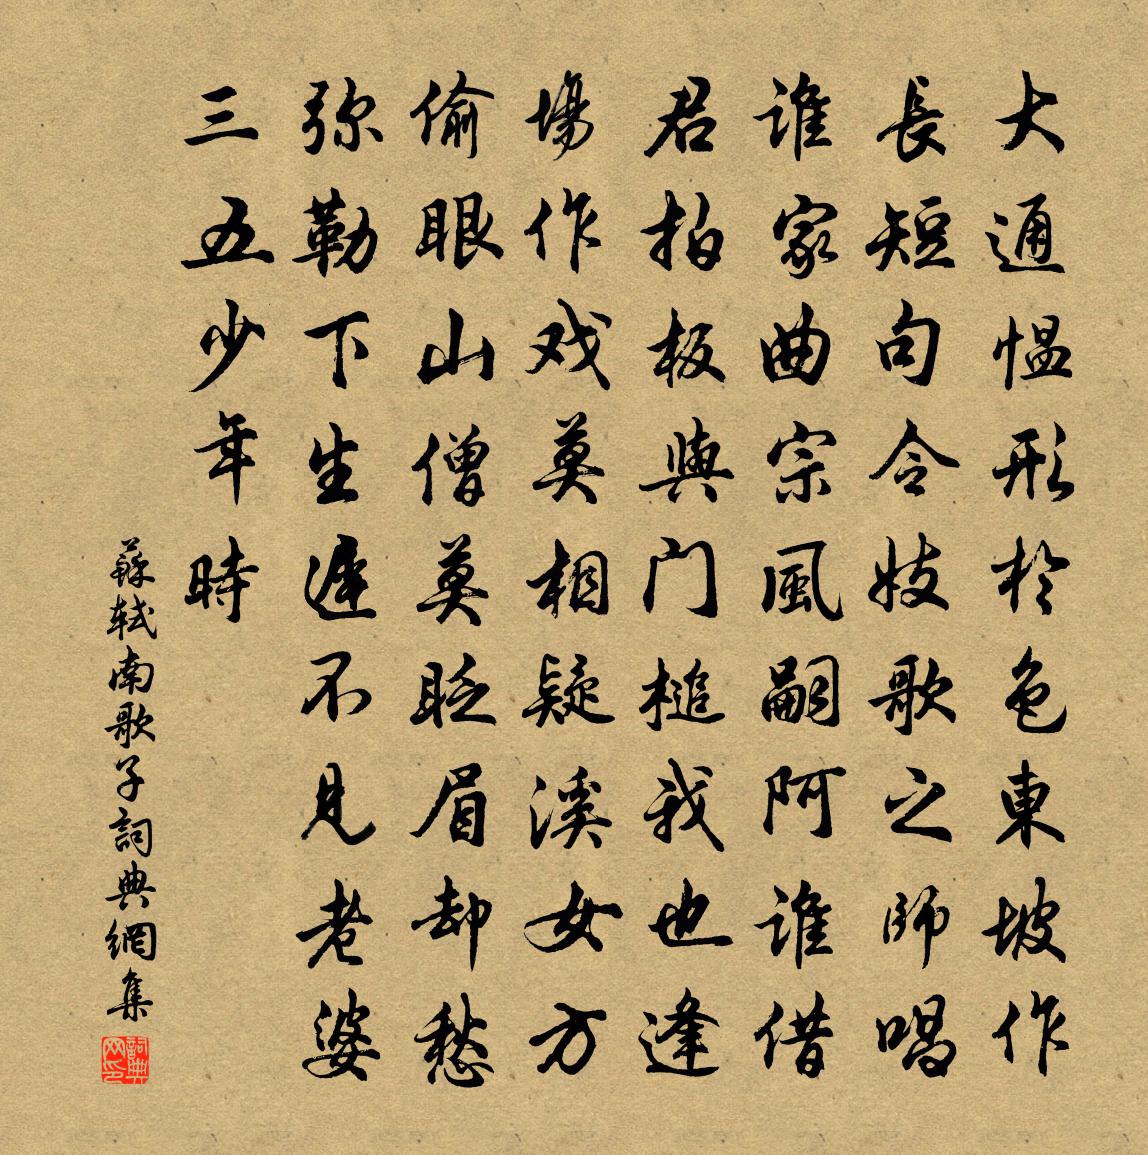 大通愠形於色東坡作
長短句令妓歌之師唱
谁家曲宗風嗣阿谁借
君拍板與门槌我也逢
場作戏莫相疑溪女方
偷眼山僧莫眨眉却愁
弥勒下生遲不見老婆
三五少年時
蘇轼南歌子詞典網集
詞典网印